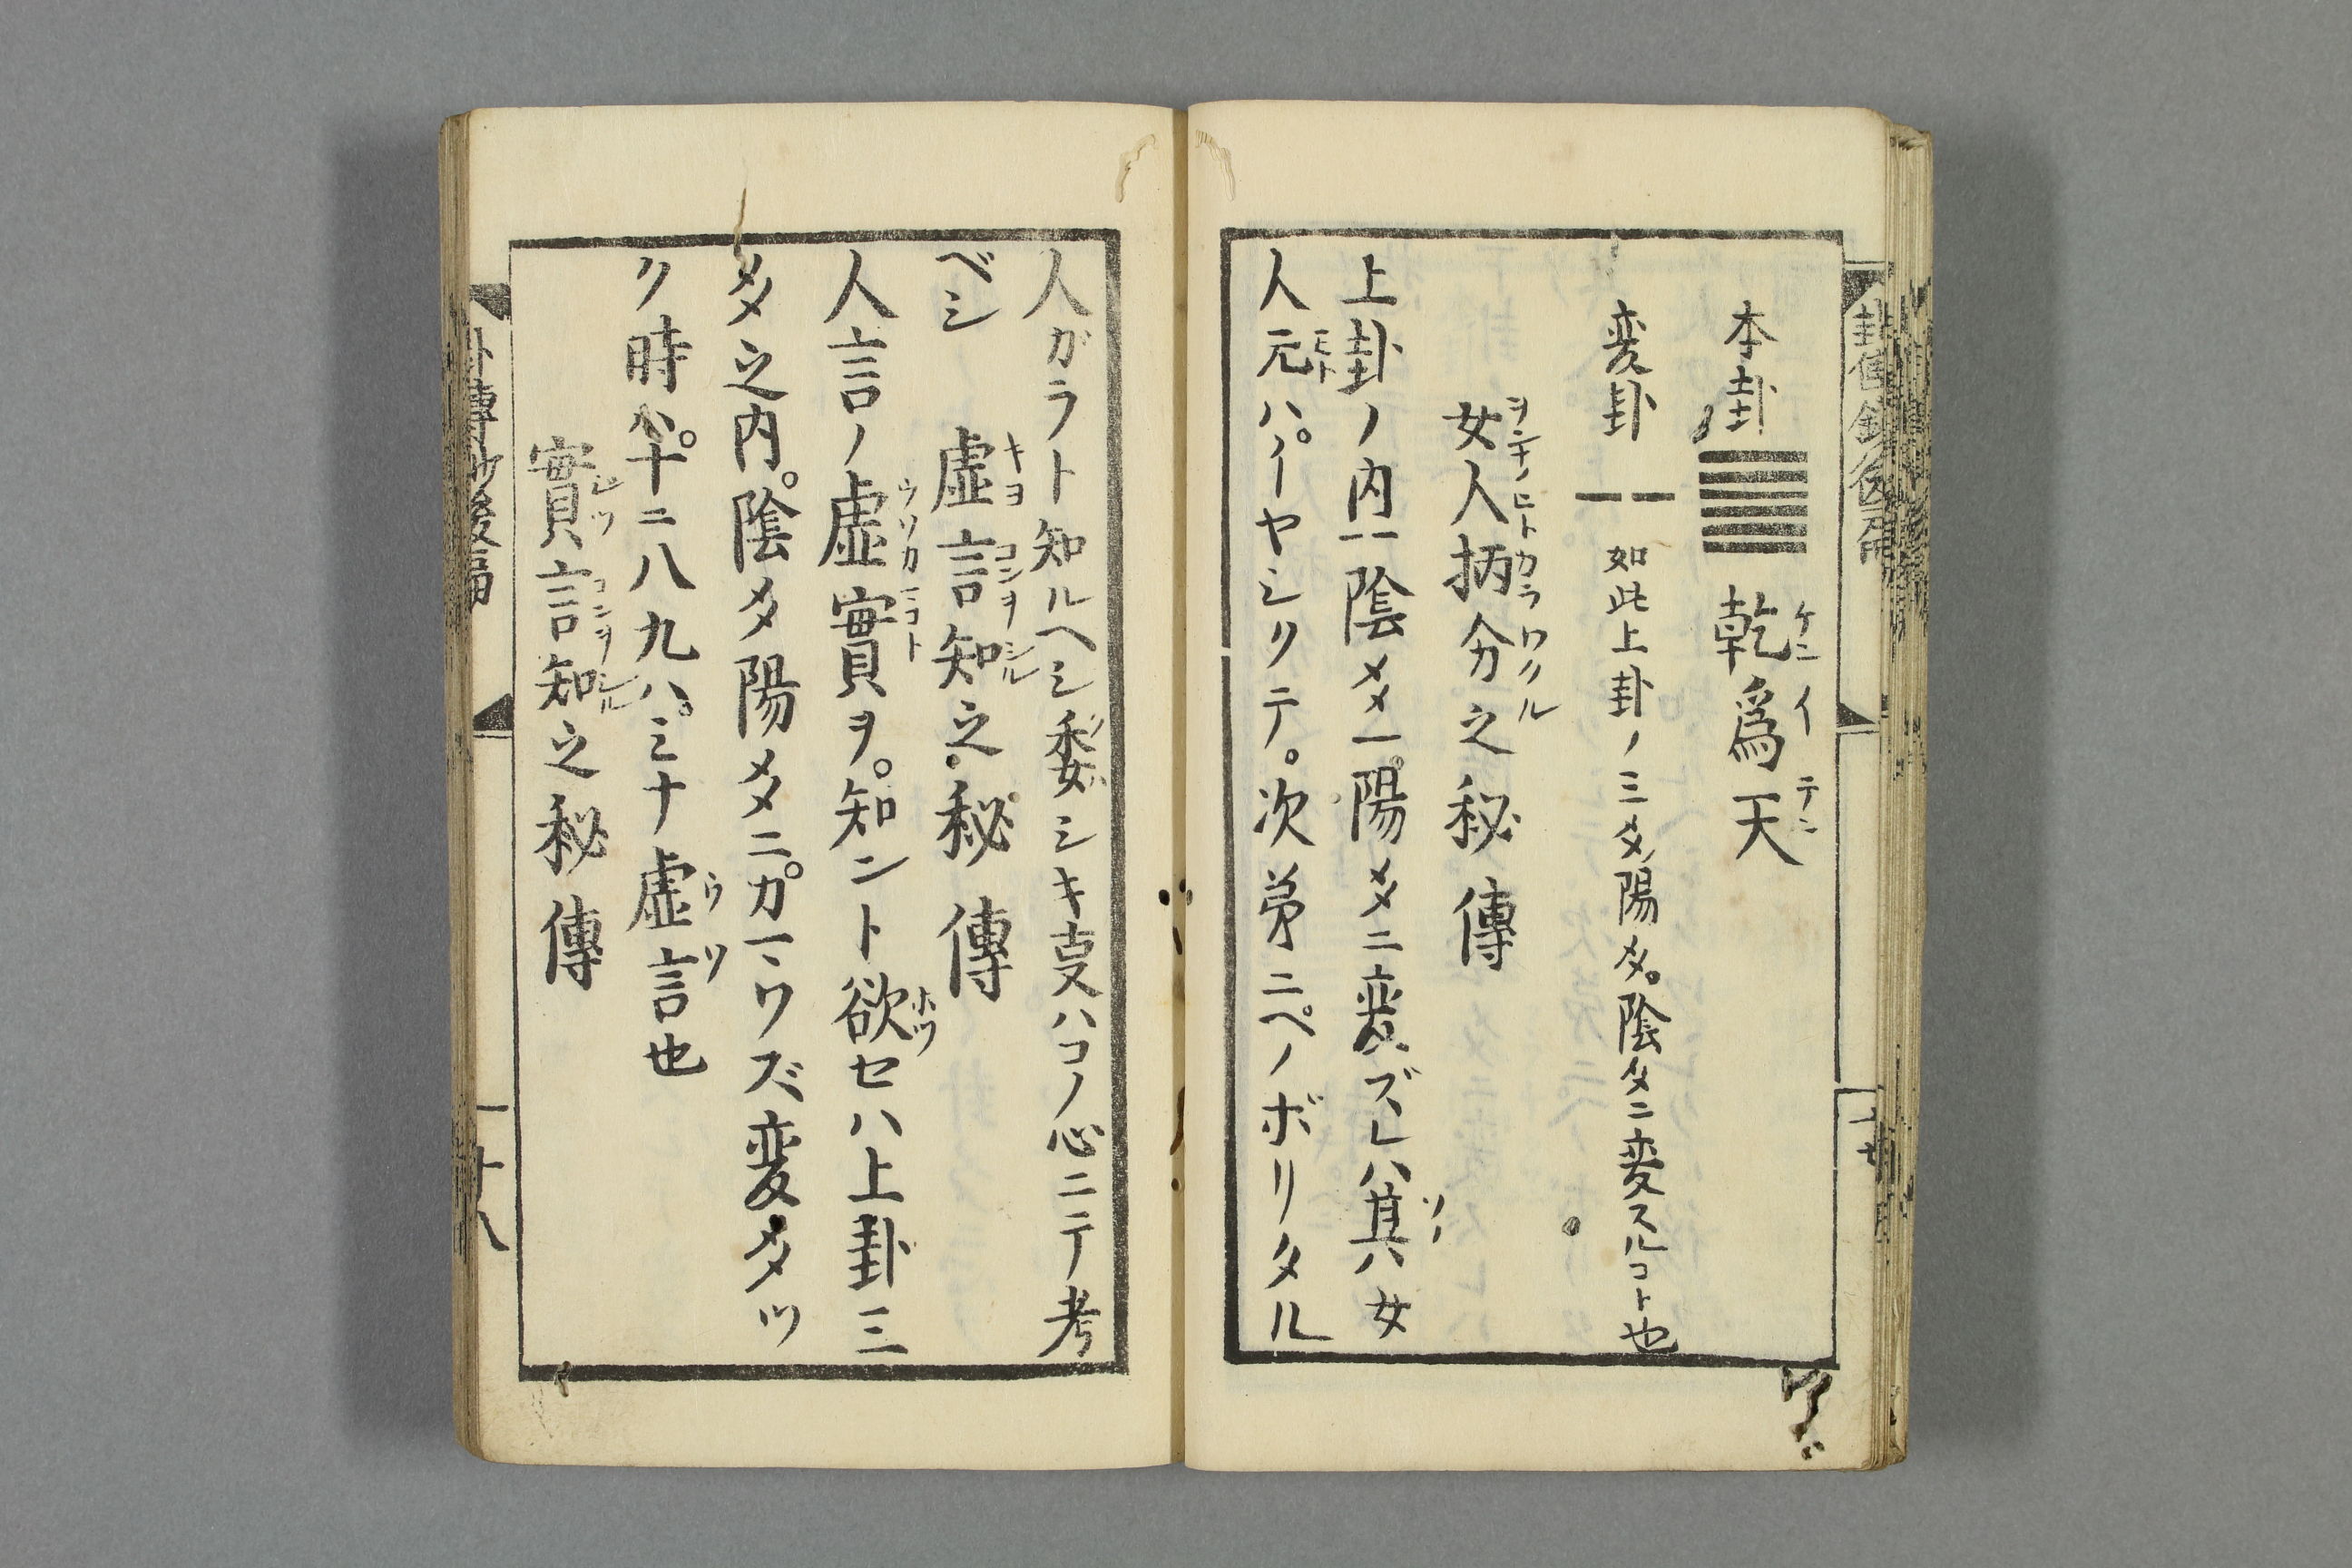 本卦 乾爲天
変卦 如此上卦ノ三爻陽爻。陰爻ニ変スルコト也
女人柄分之秘傳
上卦ノ内一陰爻一。陽爻ニ変ズレハ其ハ女
人元ハ。イヤシクテ。次第ニ。ヘノボリタル
人ガラト知ルヘシ委シキ叓ハコノ心ニテ考
ベシ 虚言知之秘傳
人言ノ虚實ヲ。知ント欲セハ上卦三
爻之内。陰爻陽爻ニ。カヽワズ変爻ツ
ク時ハ。十ニ八九ハ。ミナ虚言也
實言知之秘傳
十八